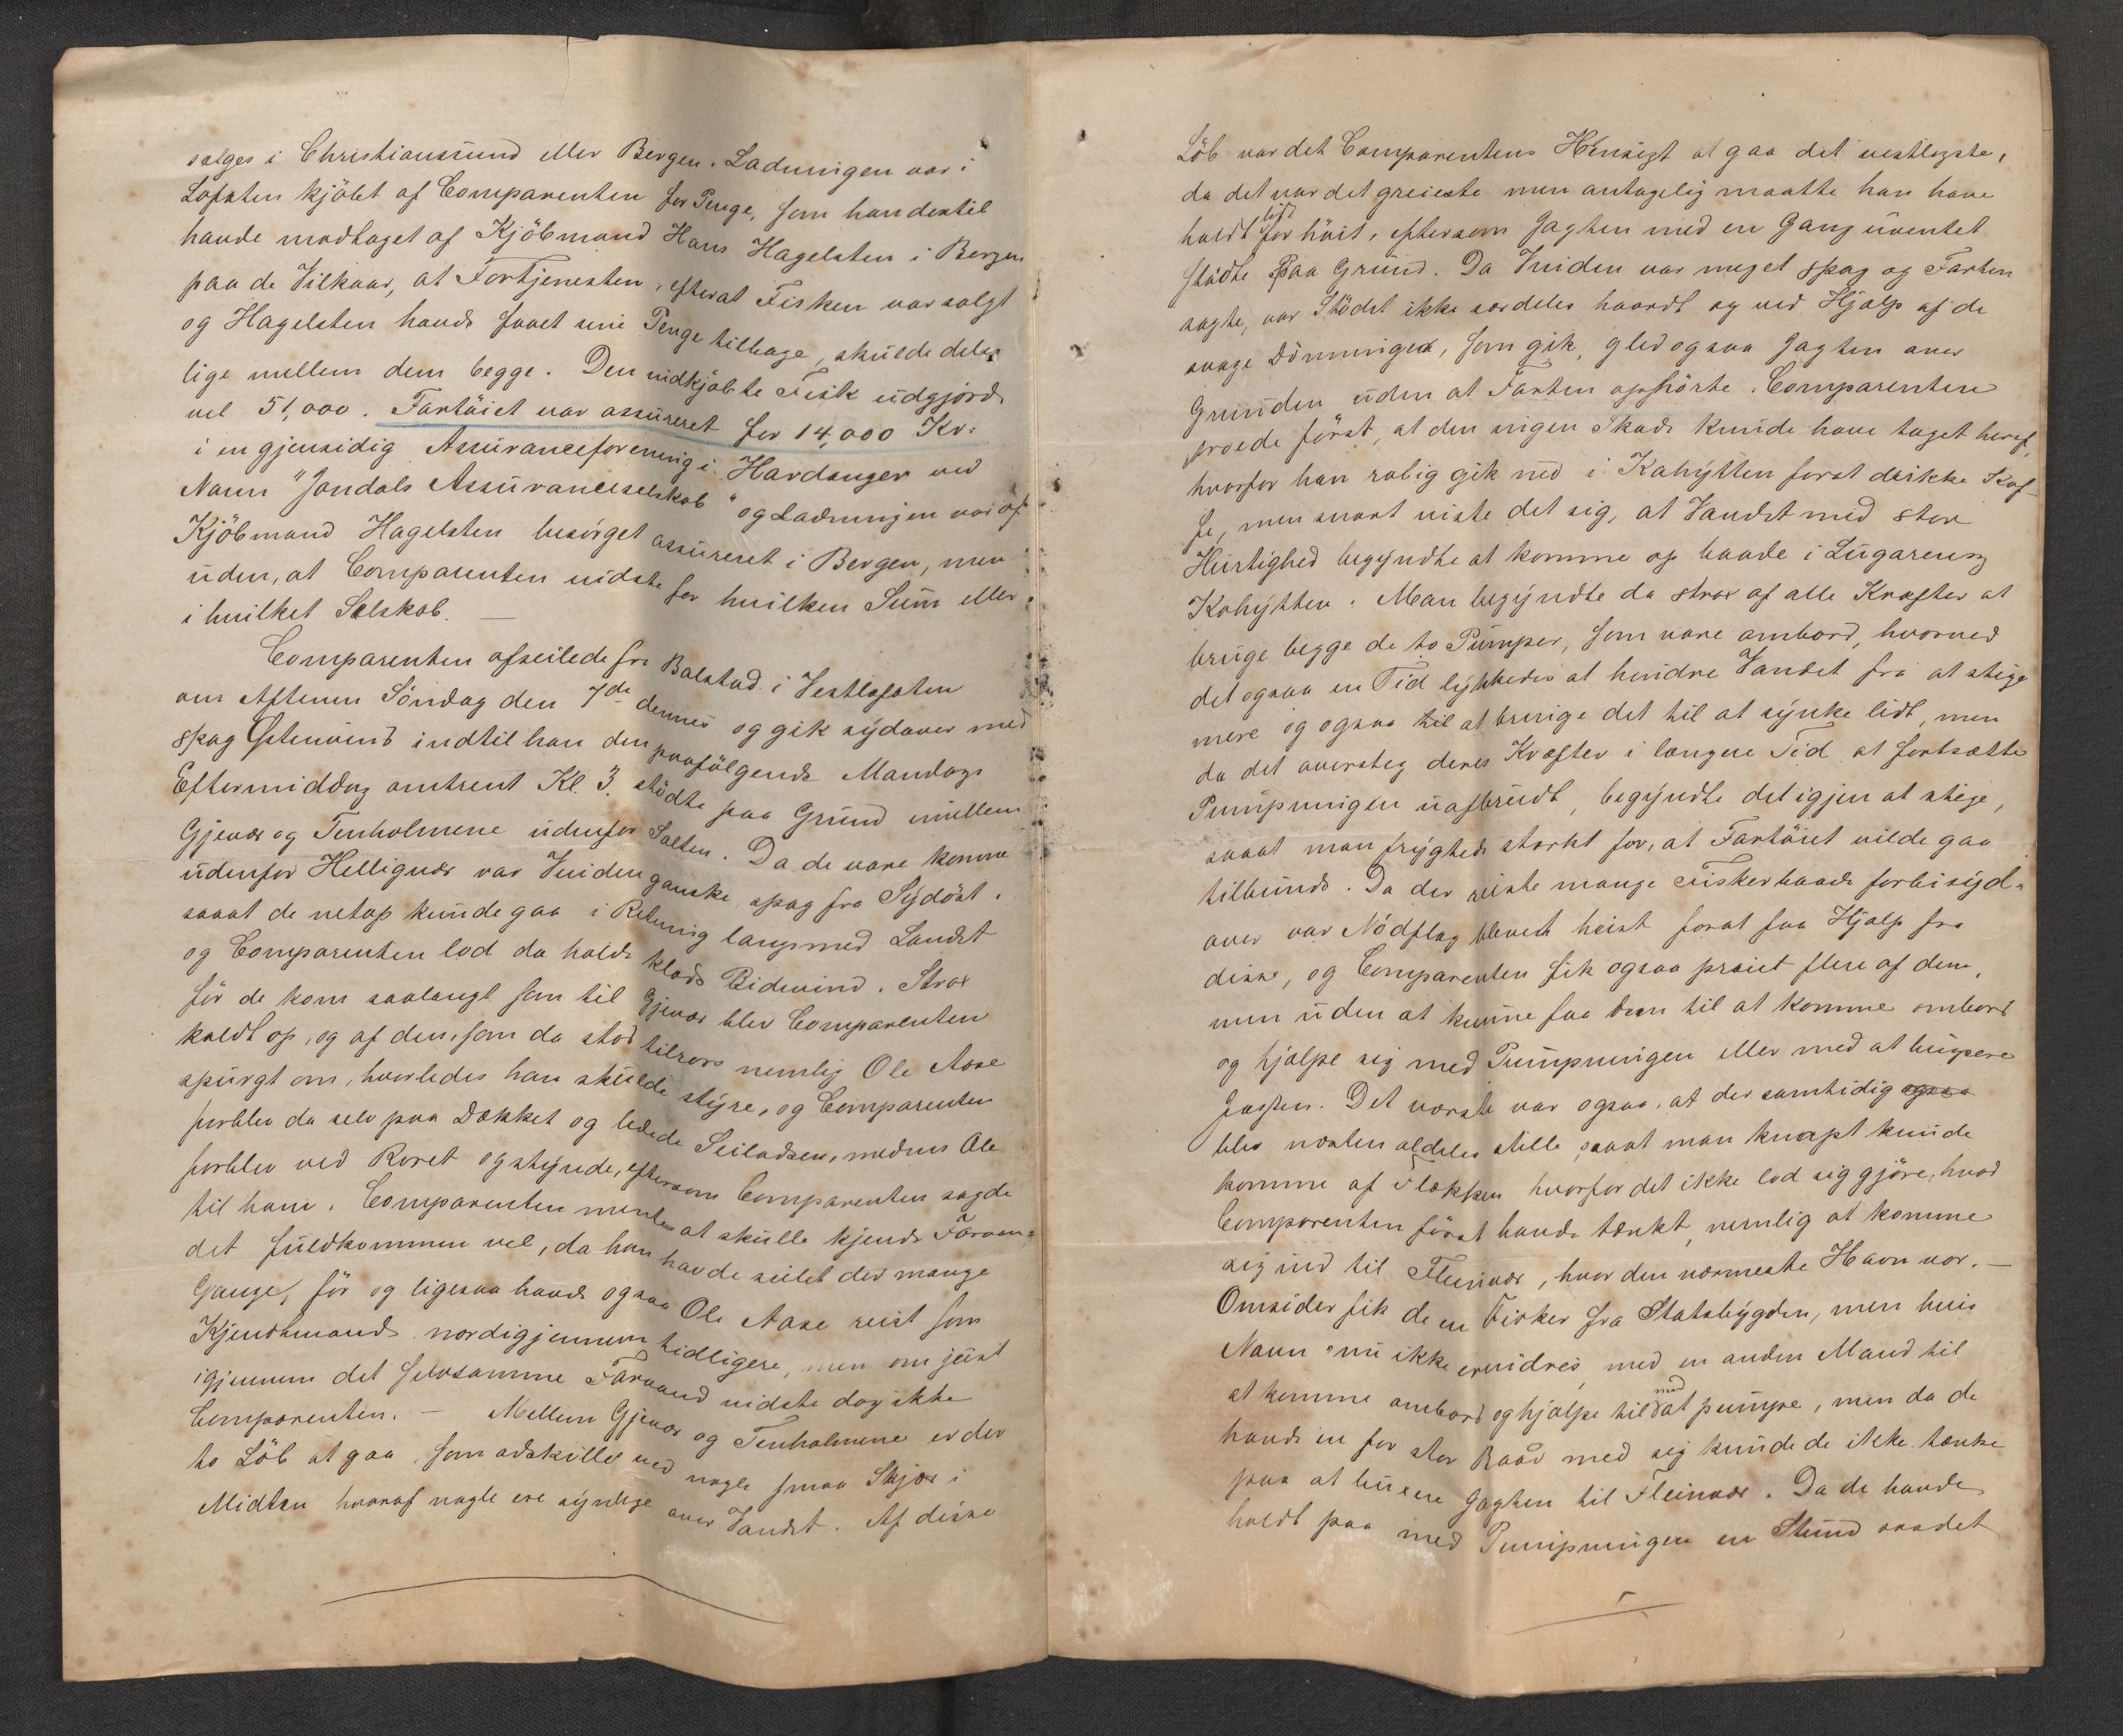 sælges i Christianssund eller Bergen. Ladningen var i
Lofoten kjöbt af Comparenten for Penge, som han dertil
havde modtaget af Kjöbmand Hans Hagelsten i Bergen
paa de Vilkaar, at Fortjenesten, efterat Fisken var solgt
og Hagelsten havde faaet sine Penge tilbage, skulde deles
lige mellem dem begge. Den indkjöbte Fisk udgjorde
vel 51,000. Fartöiet var assureret for 14,000 Kr.
i en gjensidig Assuranceforening i Hardanger ved
Navn "Jondals Assuranceselskab" og Ladningen var af
Kjöbmand Hagelsten besörget assureret i Bergen, men
uden, at Comparenten vidste for hvilken Sum eller
i hvilket Selskab. —
Comparenten afseilede fra Balstad i Vestlofoten
om Aftenen Söndag den 7de dennes og gik sydover med
spag Östenvind indtil han den paafölgende Mandags
Eftermiddag omtrent Kl. 3. stödte paa Grund mellem
Gjevær og Tenholmene udenfor Salten. Da de vare komne
udenfor Helligvær var Vinden ganske spag fra Sydöst.
saaat de netop kunde gaa i Retning langsmed Landet
og Comparenten lod da holde klods Bidevind. Strax
för de kom saalangt som til Gjevær blev Comparenten
kaldt op, og af den, som da stod tilrors nemlig Ole Aase
spurgt om, hvorledes han skulde styre, og Comparenten
forblev da selv paa Dækket og ledede Seiladsen, medens Ole
forblev ved Roret og styrede, eftersom Comparenten sagde
til ham. Comparenten mente at skulle kjende Farvan-
det fuldkommen vel, da han havde seilet der mange
Gange, för og ligesaa havde ogsaa Ole Aase reist som
Kjendtmand nordigjennem tidligere, men om just
igjennem det selvsamme Farvand vidste dog ikke
Comparenten. — Mellem Gjevær og Tenholmene er der
to Löb at gaa, som adskilles ved nogle smaa Skjær i
Midten hvoraf nogle ere synlige over Vandet. Af disse
Löb var det Comparentens Hensigt at gaa det vestligste,
da det var det greieste men antagelig maatte han have
holdt lidt for höit, eftersom Jagten med en Gang uventet
stödte paa Grund. Da Vinden var meget spag og Farten
sagte, var Stödet ikke særdeles haardt og ved Hjælp af de
svage Dönninger, som gik, gled ogsaa Jagten over
Grunden uden at Farten ophörte. Comparenten
troede först, at den ingen Skade kunde have taget heraf,
hvorfor han rolig gik ned i Kahytten forat drikke Kaf-
fe, men snart viste det sig, at Vandet med stor
Hurtighed begyndte at komme op baade i Lugaren og
Kahytten. Man begyndte da strax af alle Kræfter at
bruge begge de to Pumper, som vare ombord, hvorved
det ogsaa en Tid lykkedes at hindre Vandet fra at stige
mere og ogsaa til at bringe det til at synke lidt, men
da det oversteg deres Kræfter i længere Tid at fortsætte
Pumpningen uafbrudt, begyndte det igjen at stige,
saaat man frygtede stærkt for, at Fartöiet vilde gaa
tilbunds. Da der reiste mange Fiskerbaade forbi syd-
over var Nödflag blevet heist forat faa Hjælp fra
disse, og Comparenten fik ogsaa praiet flere af dem,
men uden at kunne faa dem til at komme ombord
og hjælpe sig med Pumpningen eller med at bugsere
Jagten. Det værste var ogsaa, at der samtidig ogsaa
blev næsten aldeles stille, saaat man knapt kunde
komme af Flækken hvorfor det ikke lod sig gjöre, hvad
Comparenten först havde tænkt, nemlig at komme
sig ind til Fleinvær, hvor den nærmeste Havn var. —
Omsider fik de en Fisker fra Statsbygden, men hvis
Navn nu ikke erindres, med en anden Mand til
at komme ombord og hjælpe til med at pumpe, men da de
havde en for stor Baad med sig kunde de ikke tænke
paa at buxere Jagten til Fleinvær. Da de havde
holdt paa med Pumpningen en Stund saa det